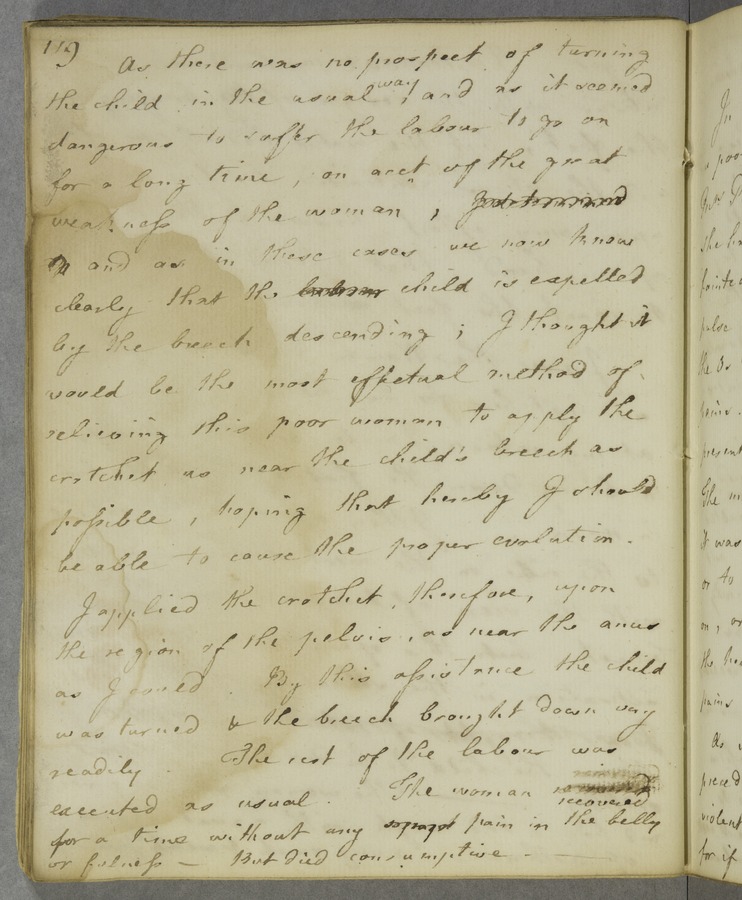 119
As there was no prospect of turning
the child in the usual way, and as it seemed
dangerous to suffer the labour to go on
for a long time, on acct of the great
weakness of the woman,
and as in these cases we now know
clearly that the child is expelled
by the breech descending; I thought it
would be the most effectual method of
relieving this poor woman to apply the
crotchet as near the child's breech as
possible, hoping that hereby I should
be able to cause the proper evolution.
I applied the crotchet, therefore, upon
the region of the pelvis, as near the anus
as I could. By this assistance the child
was turned & the breech brought down very
readily. The rest of the labour was
executed as usual. The woman recovered
for a time without any pain in the belly
or fulness — But died consumptive. —